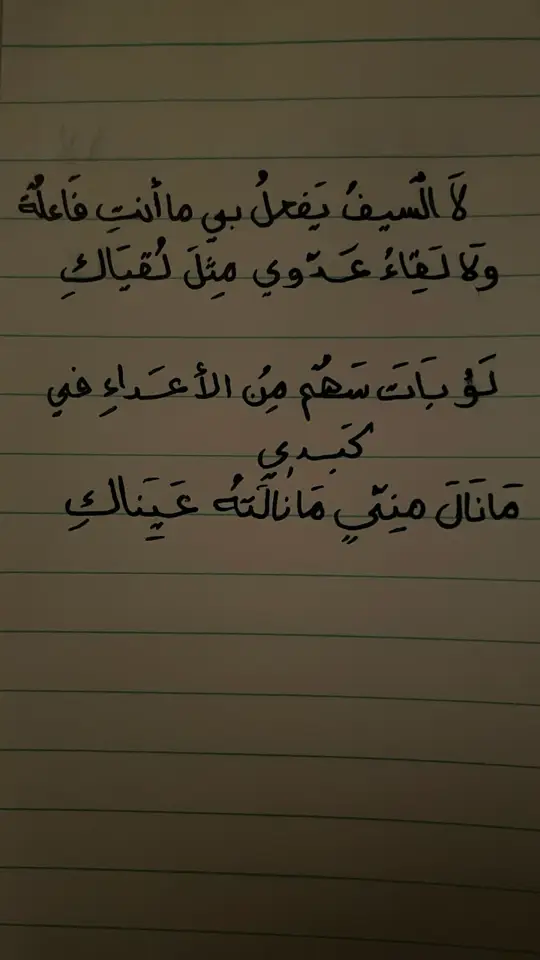 لَا الْسيفُ يَفعلُ بي ما أنتِ فَاعلةٌ
وَلَا لَقِاءُ عَدّوي مِثلَ لُقيَاكِ
لَوْ بَاتَ سَهْمٌ مِنْ الأعَداءِ في
كَبدِي
مَانَالَ مِنّيٍ مَانالَتهُ عَيَناكِ